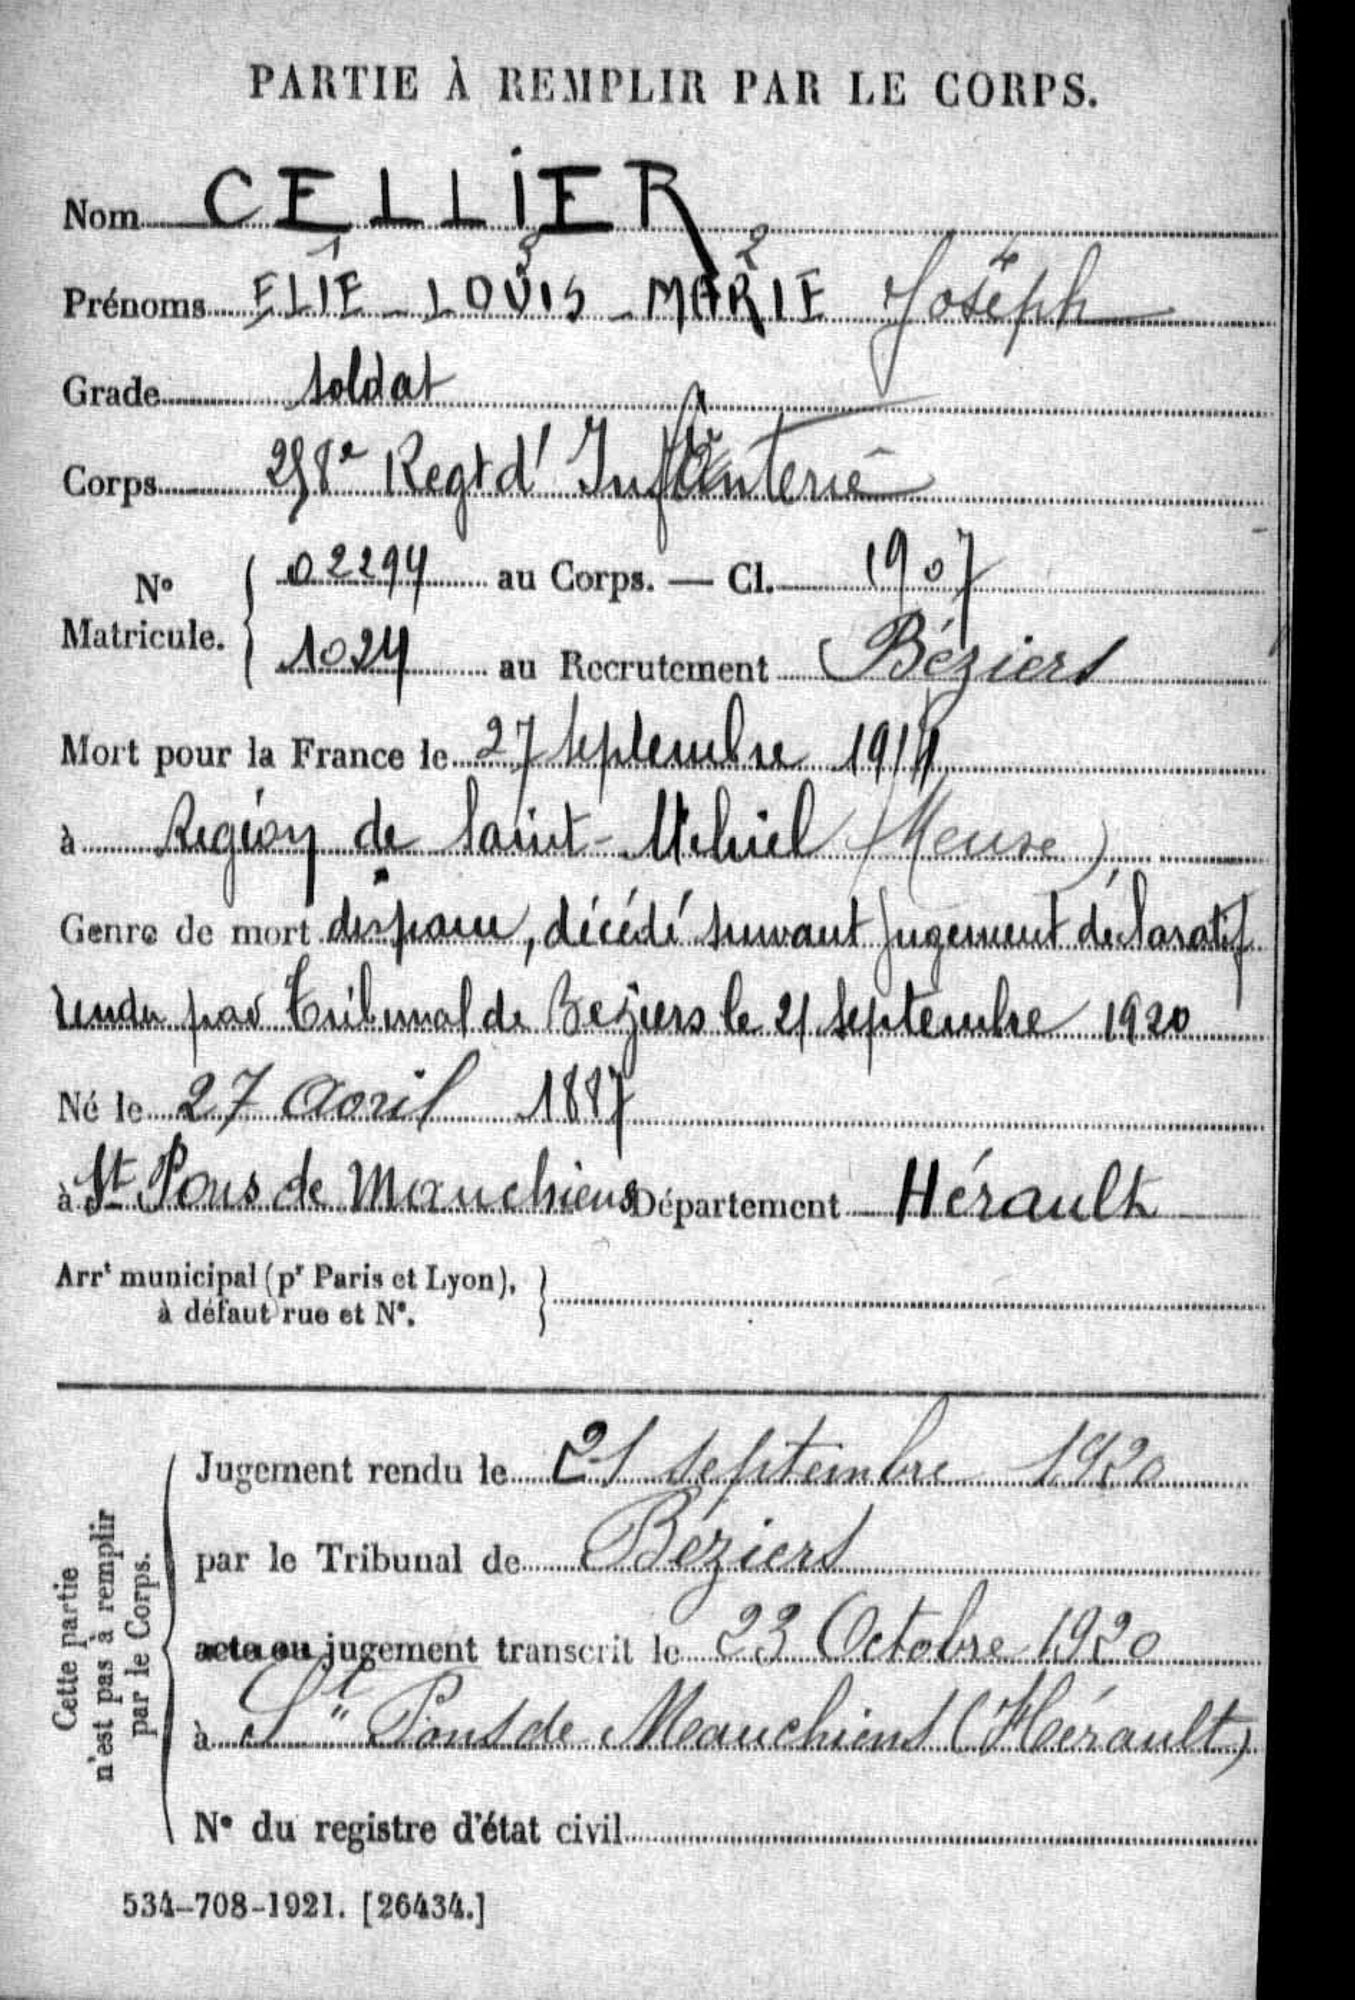 PARTIE À REMPLIR PAR LE CORPS.
Nom CELLIER
1 3 2 4
Prénoms ELIE - LOUIS - MARIE Joseph
Grade soldat
Corps 258e Regt d'Infanterie
No Matricule. 02294 au Corps. — Cl. 1907
1024 au Recrutement Béziers
Mort pour la France le 27 septembre 1914
à Région de Saint-Mihiel (Meuse)
Genre de mort disparu, décédé suivant jugement déclaratif
rendu par Tribunal de Beziers le 21 septembre 1920
Né le 27 Avril 1887
à St Pons de Mauchiens Département Hérault
Arrt municipal (pr Paris et Lyon),
à défaut rue et No.
Cette partie
n'est pas à remplir
par le Corps.
Jugement rendu le 21 septembre 1920
par le Tribunal de Béziers
acte ou jugement transcrit le 23 Octobre 1920
à St Pons de Mauchiens (Hérault)
No du registre d'état civil
534-708-1921. [26434.]